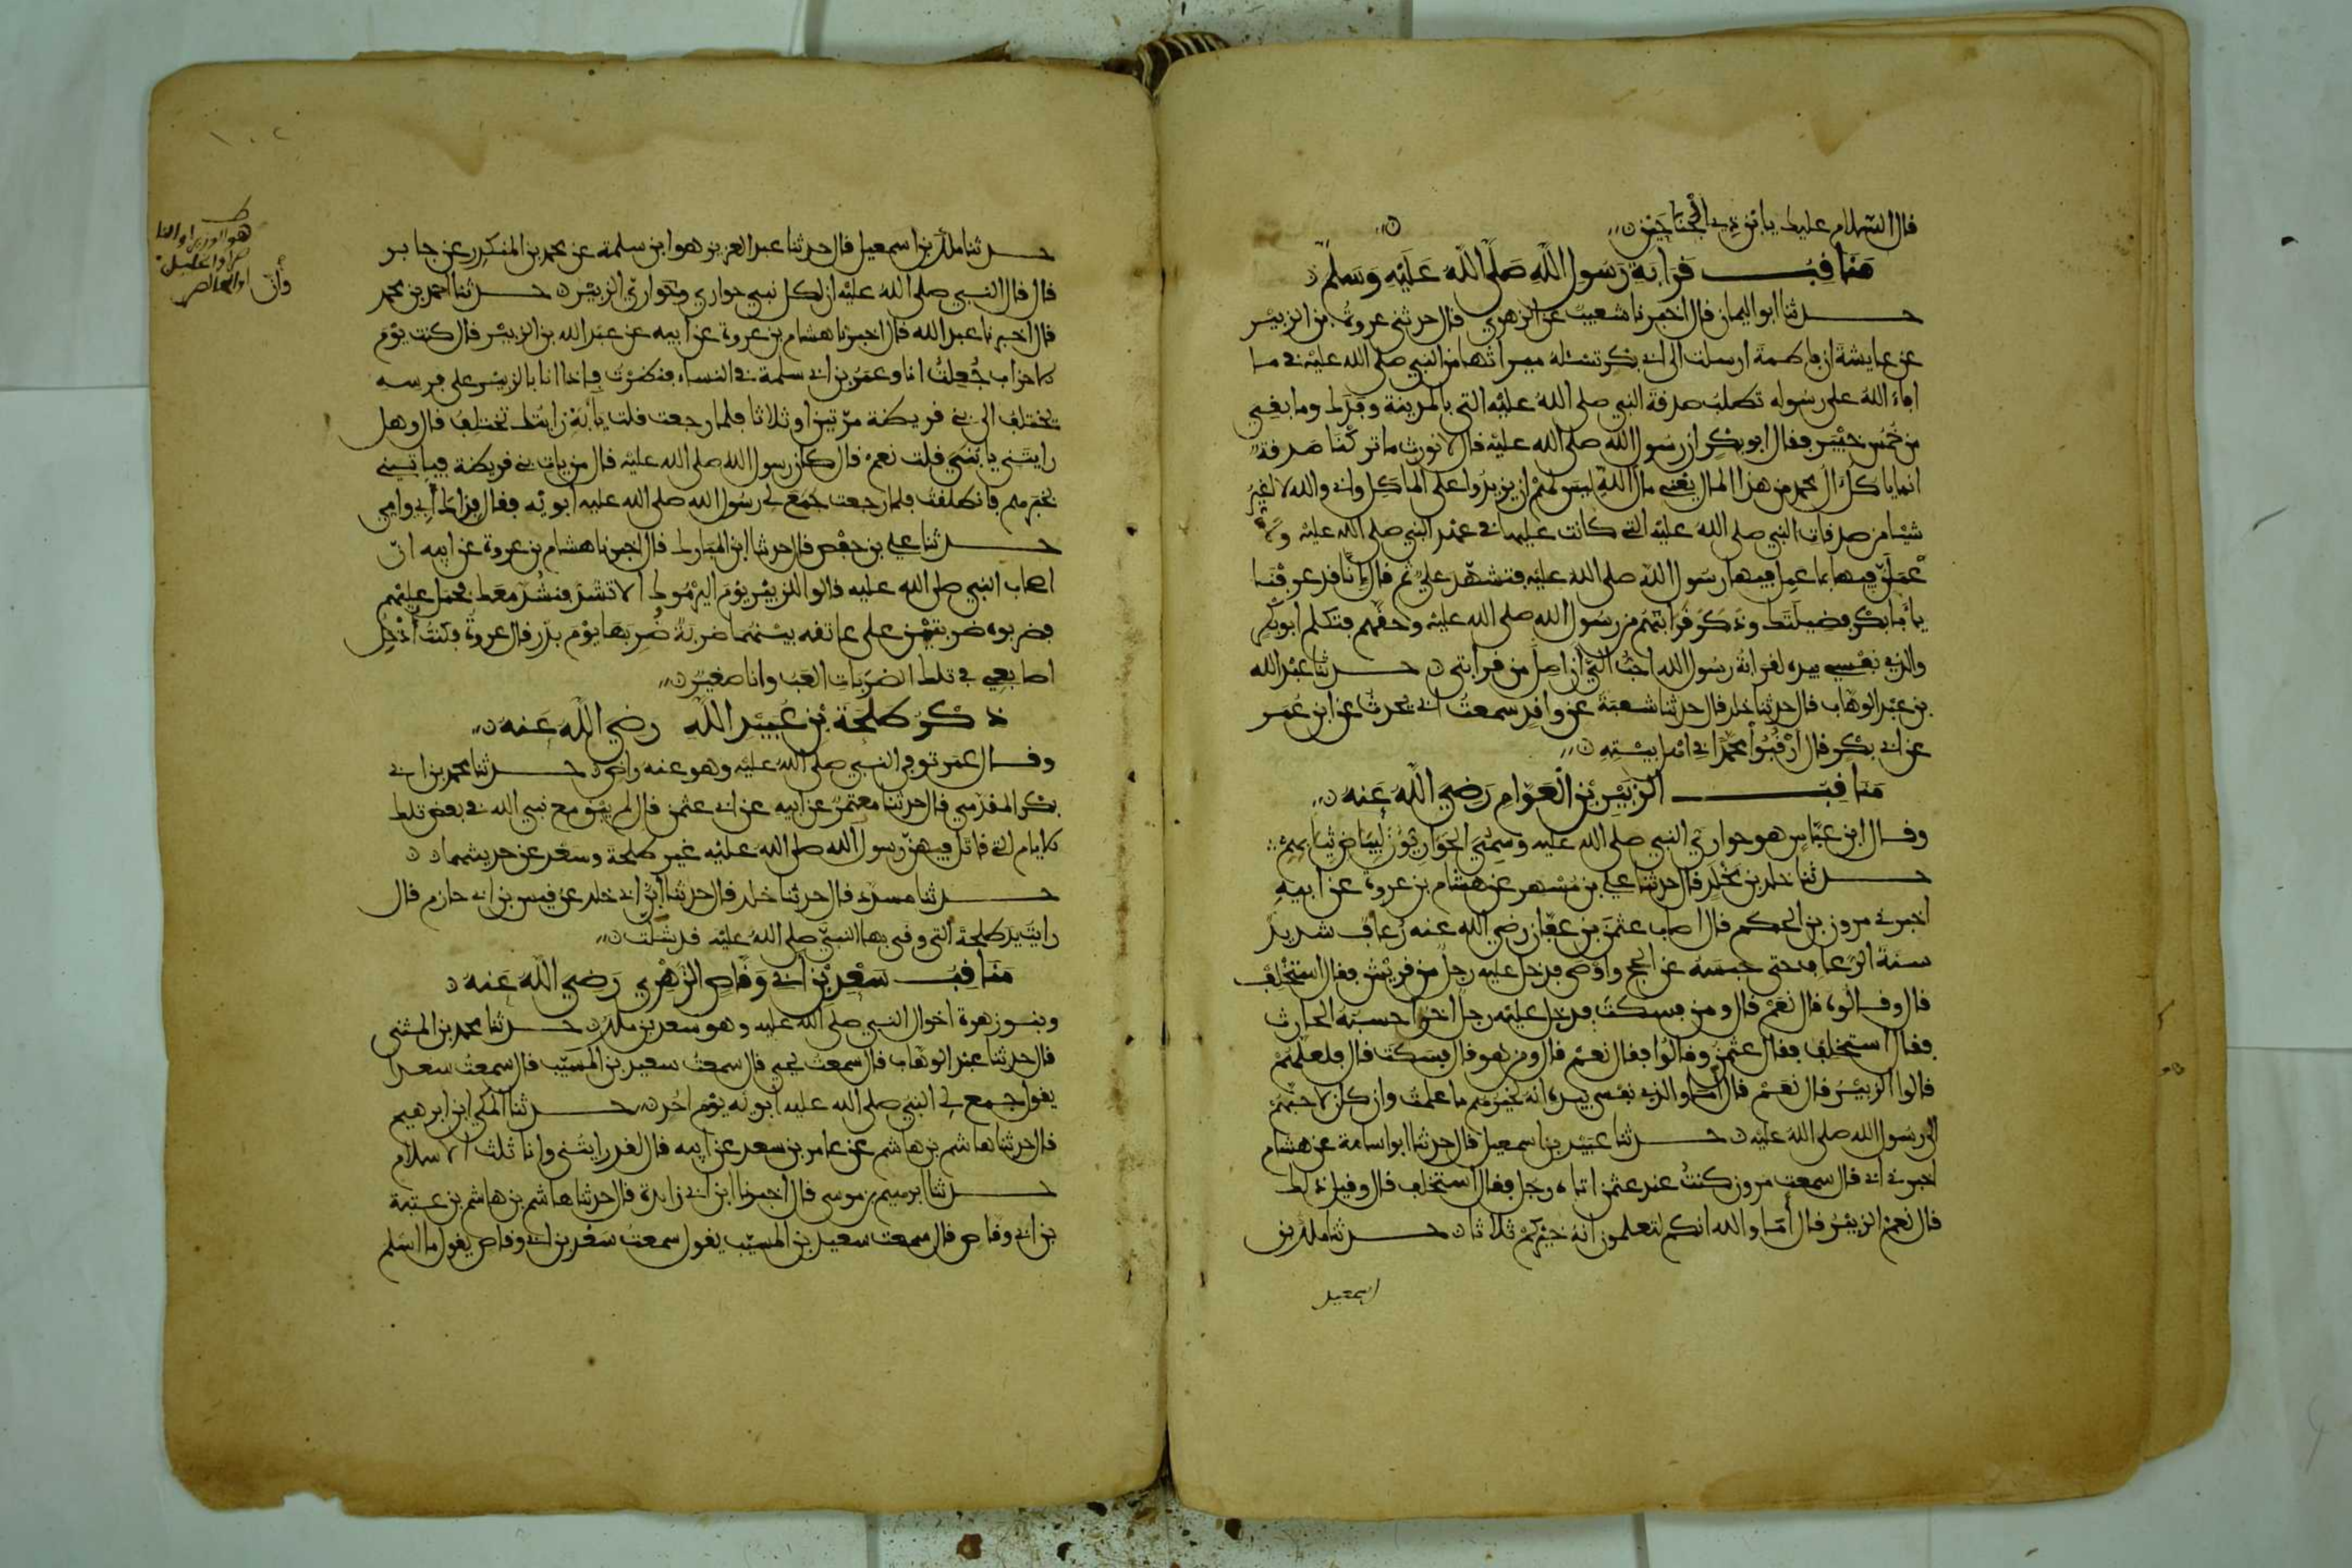 قال السلام عليك يا ابن ذي الجناحين
مناقب قرابة رسول الله صلى الله عليه وسلم
حدثنا ابو اليمان قال اخبرنا شعيب عن الزهري قال حدثني عروة بن الزبير
عن عايشة ان فاطمة ارسلت الى ابي بكر تسئله ميراثها من النبي صلى الله عليه في ما
افاء الله على رسوله تطلب صدقة النبي صلى الله عليه التي بالمدينة وفدك وما بقي
من خمس خيبر فقال ابو بكر ان رسول الله صلى الله عليه قال لا نورث ما تركنا صدقة
انما ياكل ال محمد من هذا المال يعني مال الله ليس لهم ان يزيدوا على الماكل واني والله لا اغير
شيئا من صدقات النبي صلى الله عليه التي كانت عليها في عهد النبي صلى الله عليه ولا
عملن فيها بما عمل فيها رسول الله صلى الله عليه فتشهد علي ثم قال انا قد عرفنا
يا أبا بكر فضيلتك وذكر قرابتهم من رسول الله صلى الله عليه وحقهم فتكلم ابو بكر
والذي نفسي بيده لقرابة رسول الله احب الي ان اصل من قرابتي حدثنا عبد الله
بن عبد الوهاب قال حدثنا خالد قال حدثنا شعبة عن واقد سمعت ابي يحدث عن ابن عمر
عن ابي بكر قال ارقبوا محمدا في اهل بيته
مناقب الزبير بن العوام رضي الله عنه
وقال ابن عباس هو حواري النبي صلى الله عليه وسمي الحواريون لبياض ثيابهم
حدثنا خلد بن مخلد قال حدثنا علي بن مسهر عن هشام بن عروة عن ابيه
اخبرني مرون بن الحكم قال اصاب عثمن بن عفان رضي الله عنه رعاف شديد
سنة الرعاف حتى حبسه عن الحج واوصى فدخل عليه رجل من قريش فقال استخلف
قال وقالوه قال نعم قال ومن فسكت فدخل عليه رجل اخر احسبه الحارث
فقال استخلف فقال عثمن وقالوا فقال نعم قال ومن هو قال فسكت قال فلعلهم
قالوا الزبير قال نعم قال اما والذي نفسي بيده انه لخيرهم ما علمت وان كان لاحبهم
الى رسول الله صلى الله عليه حدثنا عبيد بن اسمعيل قال حدثنا ابو اسامة عن هشام
اخبرني ابي قال سمعت مرون كنت عند عثمن اتاه رجل فقال استخلف قال وقيل ذلك
قال نعم الزبير قال أما والله انكم لتعلمون انه خيركم ثلاثا حدثنا ملك بن
اسمعيل
حدثنا ملك بن اسمعيل قال حدثنا عبد العزيز هو ابن سلمة عن محمد بن المنكدر عن جابر
قال قال النبي صلى الله عليه ان لكل نبي حواري وحواري الزبير حدثنا احمد بن محمد
قال اخبرنا عبد الله قال اخبرنا هشام بن عروة عن ابيه عن عبد الله بن الزبير قال كنت يوم
الاحزاب جعلت انا وعمر بن ابي سلمة في النساء فنظرت فاذا انا بالزبير على فرسه
يختلف الى بني قريظة مرتين او ثلاثا فلما رجعت قلت يا أبه رايتك تختلف قال وهل
رايتني يا بني قلت نعم قال كان رسول الله صلى الله عليه قال من يات بني قريظة فياتيني
بخبرهم فانطلقت فلما رجعت جمع لي رسول الله صلى الله عليه ابويه فقال فداك أبي وامي
حدثنا علي بن حفص قال حدثنا ابن المبارك قال اخبرنا هشام بن عروة عن ابيه ان
اصحاب النبي صلى الله عليه قالوا للزبير يوم اليرموك الا تشد فنشد معك فحمل عليهم
فضربوه ضربتين على عاتقه بينهما ضربة ضربها يوم بدر قال عروة فكنت أدخل
اصابعي في تلك الضربات العب وانا صغير
ذكر طلحة بن عبيد الله رضي الله عنه
وقال عمر توفي النبي صلى الله عليه وهو عنه راض حدثنا محمد بن ابي
بكر المقدمي قال حدثنا معتمر عن ابيه عن ابي عثمن قال لم يبق مع نبي الله في بعض تلك
الايام التي قاتل فيهن رسول الله صلى الله عليه غير طلحة وسعد عن حديثهما
حدثنا مسدد قال حدثنا خلد قال حدثنا ابن ابي خلد عن قيس بن ابي حازم قال
رايت يد طلحة التي وقى بها النبي صلى الله عليه قد شلت
مناقب سعد بن ابي وقاص الزهري رضي الله عنه
وبنو زهرة اخوال النبي صلى الله عليه وهو سعد بن ملك حدثنا محمد بن المثنى
قال حدثنا عبد الوهاب قال سمعت يحيى قال سمعت سعيد بن المسيب قال سمعت سعدا
يقول جمع لي النبي صلى الله عليه ابويه يوم احد حدثنا المكي ابن ابرهيم
قال حدثنا هاشم بن هاشم عن عامر بن سعد عن ابيه قال لقد رايتني وانا ثلث الاسلام
حدثنا ابرهيم بن موسى قال اخبرنا ابن ابي زايدة قال حدثنا هاشم بن هاشم بن عتبة
بن ابي وقاص قال سمعت سعيد بن المسيب يقول سمعت سعد بن ابي وقاص يقول ما اسلم